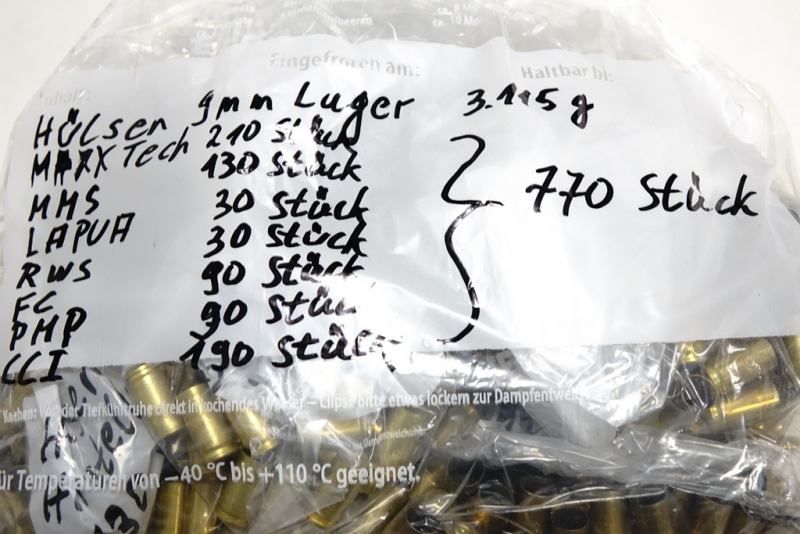 ca. 10 Mo
Eingefroren am: Haltbar bi
Inhalt:
Hülsen 9mm Luger 3.115 g
MAXX Tech 210 Stück
MMS 130 Stück
LAPUA 30 Stück
RWS 30 Stück
FC 90 Stück
PMP 90 Stück
CCI 190 Stück
770 Stück
Kochen: Von der Tiefkühltruhe direkt in kochendes Wasser – Clipse bitte etwas lockern zur Dampfentwei
ür Temperaturen von –40 °C bis +110 °C geeignet.